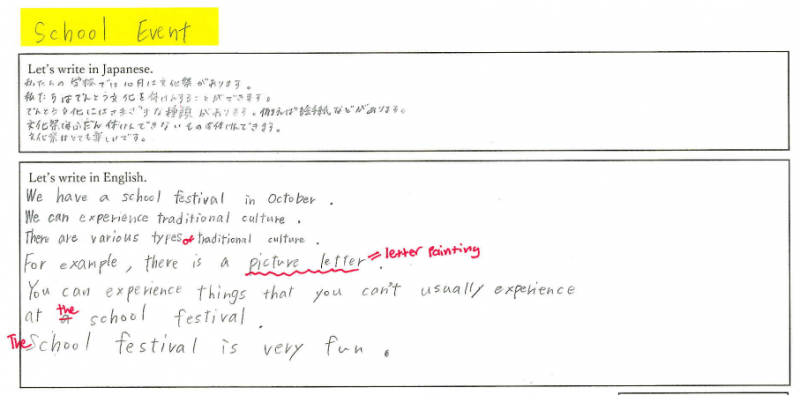 School Event
Let's write in Japanese.
私たちの学校では10月に文化祭があります。
私たちはでんとう文化を体けんすることができます。
でんとう文化にはさまざまな種類があります。例えば絵手紙などがあります。
文化祭はふだん体けんできないものを体けんできます。
文化祭はとても楽しいです。
Let's write in English.
We have a school festival in October .
We can experience traditional culture .
There are various types of traditional culture .
For example, there is a picture letter . = letter Painting
You can experience things that you can't usually experience
at a the school festival .
The School festival is very fun .